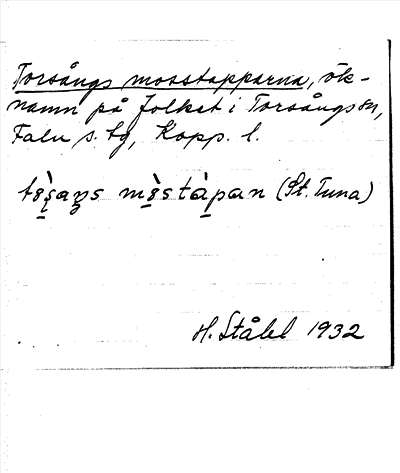 Torsångs mosstapparna, ök-
namn på folket i Torsångs sn,
Falu s. tg, Kopp. l.
(St. Tuna)
H. Ståhl 1932